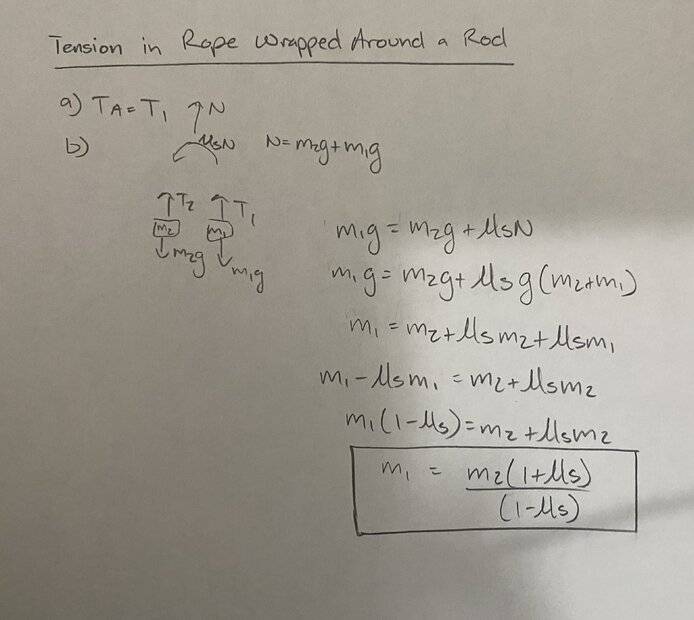 Tension in Rope Wrapped Around a Rod
a) TA = T1 N
b) μsN N = m2g + m1g
T2 T1
m2 m1
m2g m1g
m1g = m2g + μsN
m1g = m2g + μsg(m2+m1)
m1 = m2 + μsm2 + μsm1
m1 - μsm1 = m2 + μsm2
m1(1-μs) = m2 + μsm2
m1 = m2(1+μs)
(1-μs)